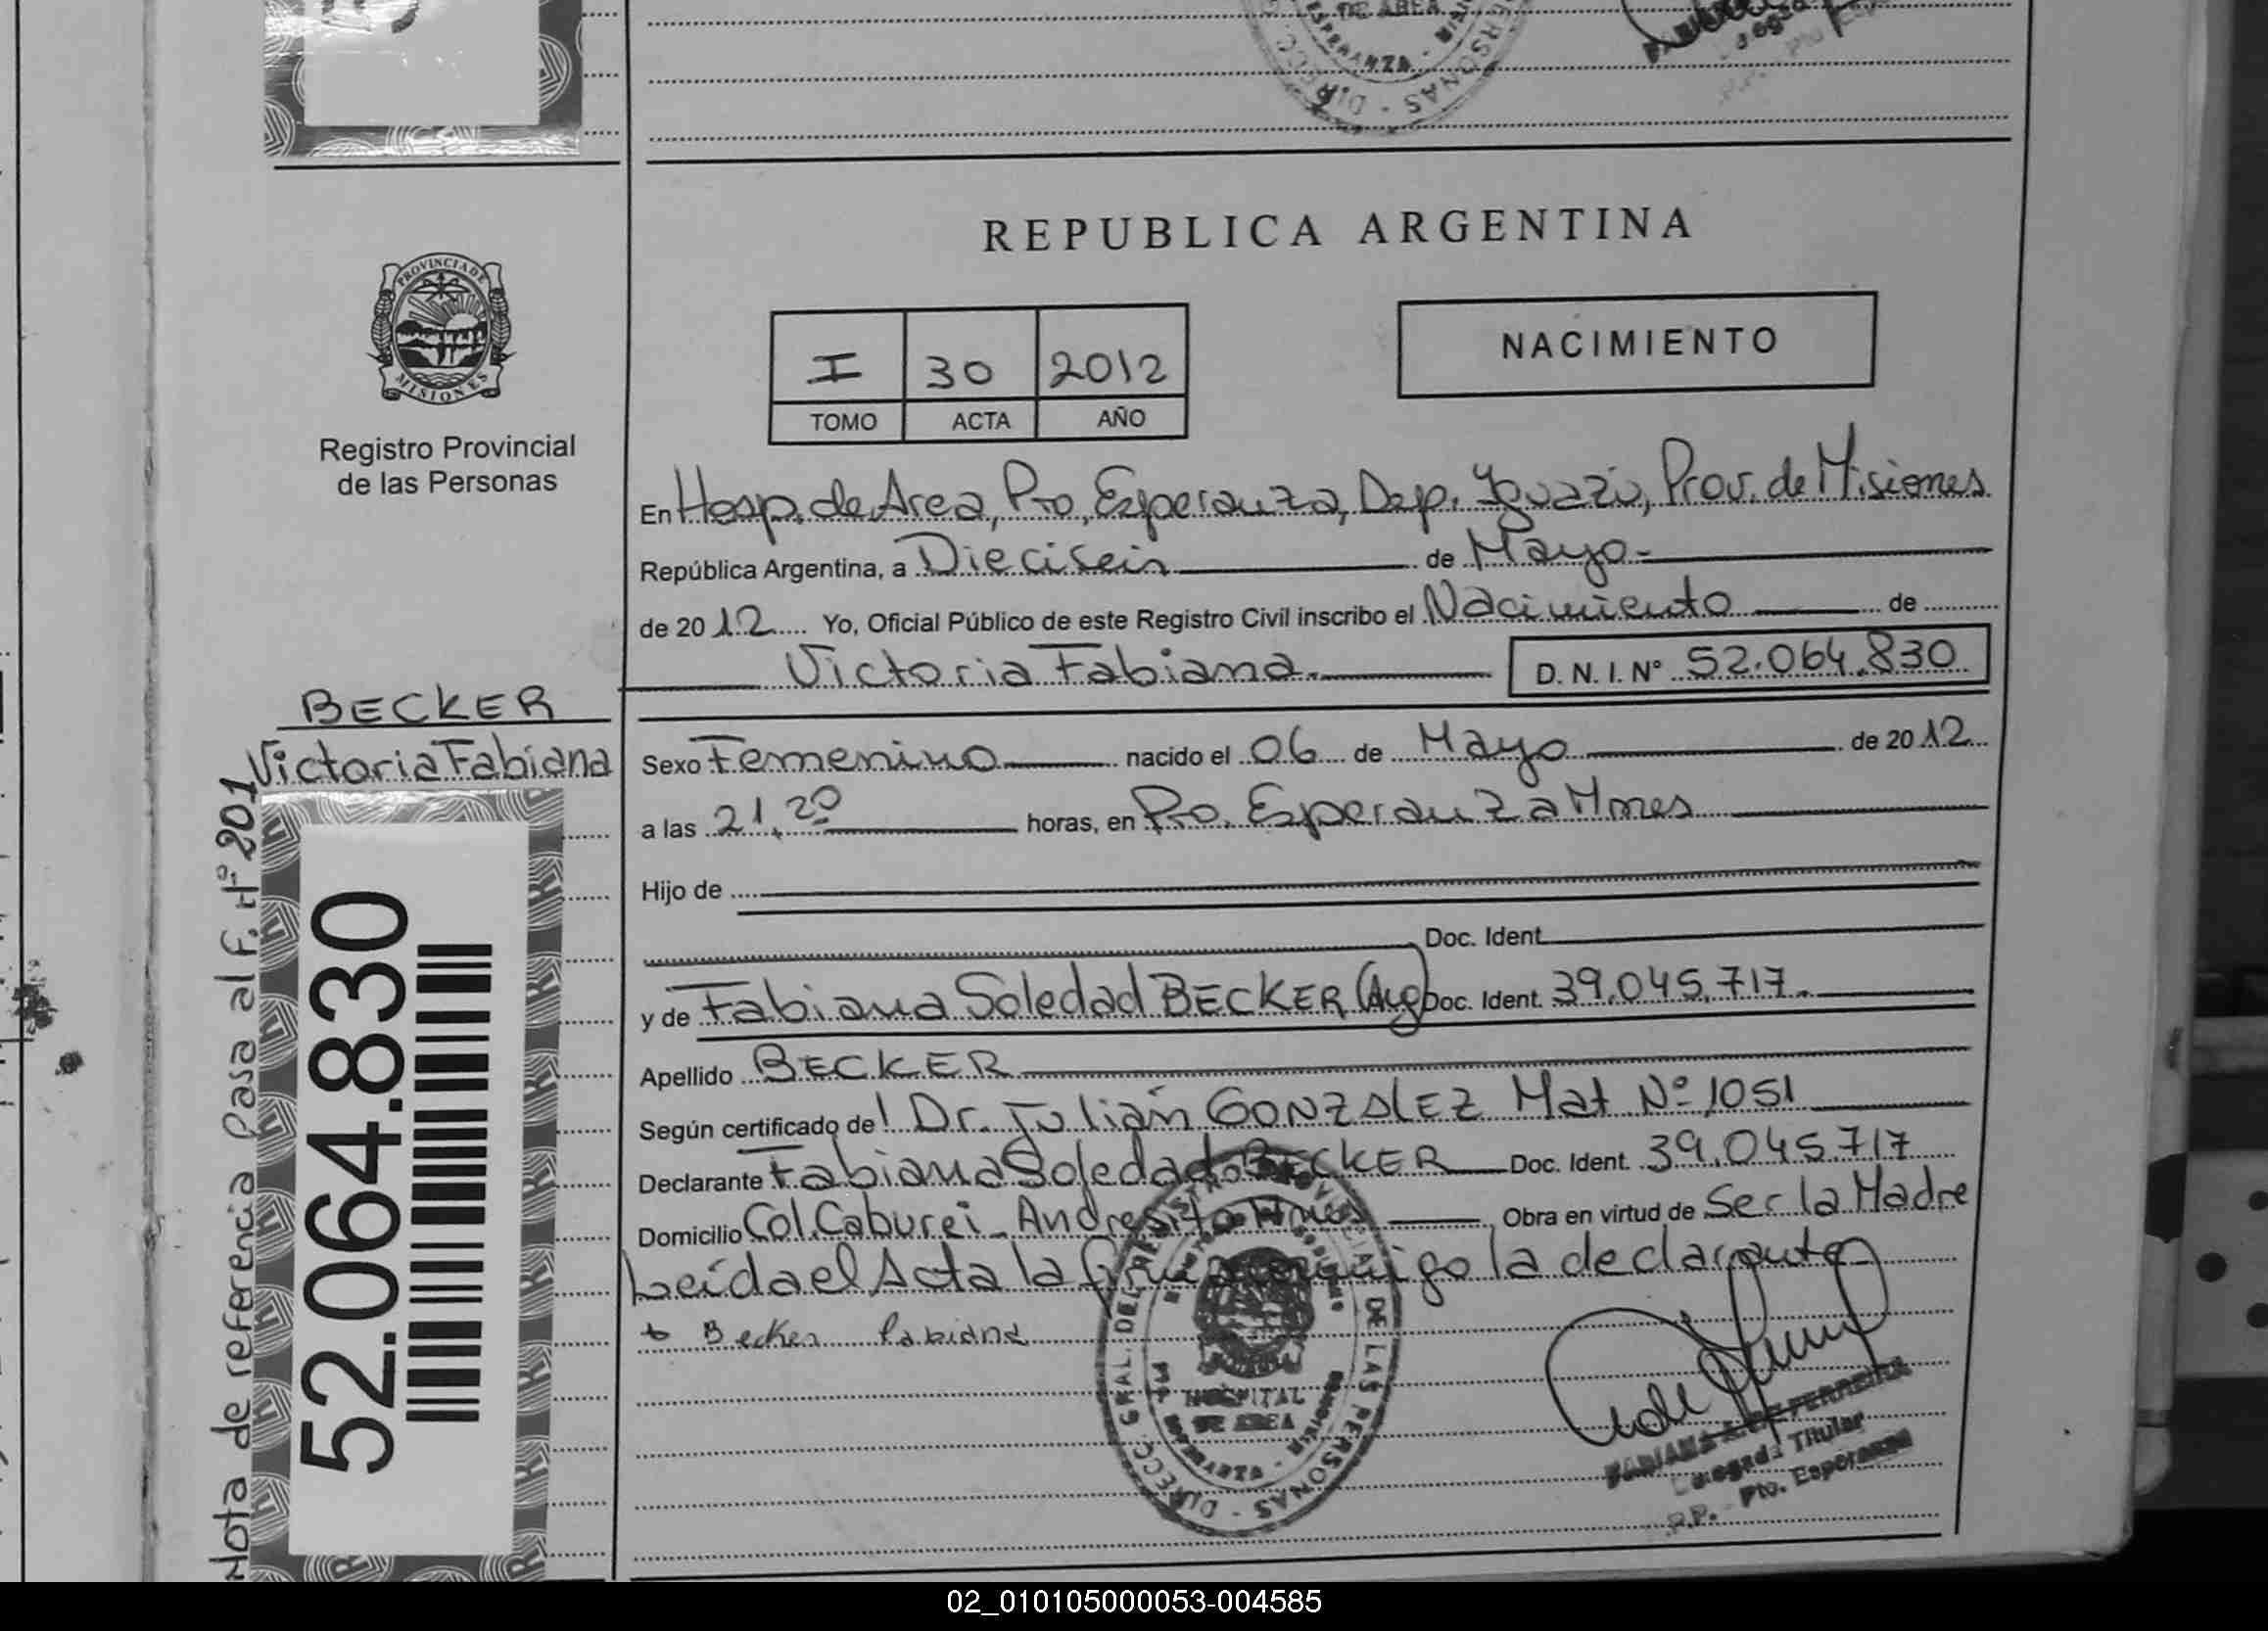 REPUBLICA ARGENTINA
PROVINCIA DE
MISIONES
Registro Provincial
de las Personas
I 30 2012
TOMO ACTA AÑO
NACIMIENTO
En Hosp. de Area, Pto. Esperanza, Dep. Iguazú, Prov. de Misiones
República Argentina, a Dieciseis de Mayo.-
de 2012 Yo, Oficial Público de este Registro Civil inscribo el Nacimiento de
Victoria Fabiana. D. N. I. N° 52.064.830
BECKER
Victoria Fabiana
Sexo Femenino nacido el 06 de Mayo de 2012
a las 21,20 horas, en Pto. Esperanza Mnes
Hijo de
Doc. Ident.
y de Fabiana Soledad BECKER (Arg) Doc. Ident. 39.045.717.
Apellido BECKER
Según certificado de Dr. Julián GONZALEZ Mat Nº 1051
Declarante Fabiana Soledad BECKER Doc. Ident. 39.045.717
Domicilio Col. Caburei - Andresito Mnes Obra en virtud de Ser la Madre
Leída el Acta la firma conmigo la declarante
Becker Fabiana
Nota de referencia Pasa al F. Nº 201
52.064.830
DIRECC. GRAL. DEL REGISTRO PROVINCIAL DE LAS PERSONAS
HOSPITAL
DE AREA
FABIANA A. DE FERREIRA
Delegada Titular
R.P. - Pto. Esperanza
02_010105000053-004585